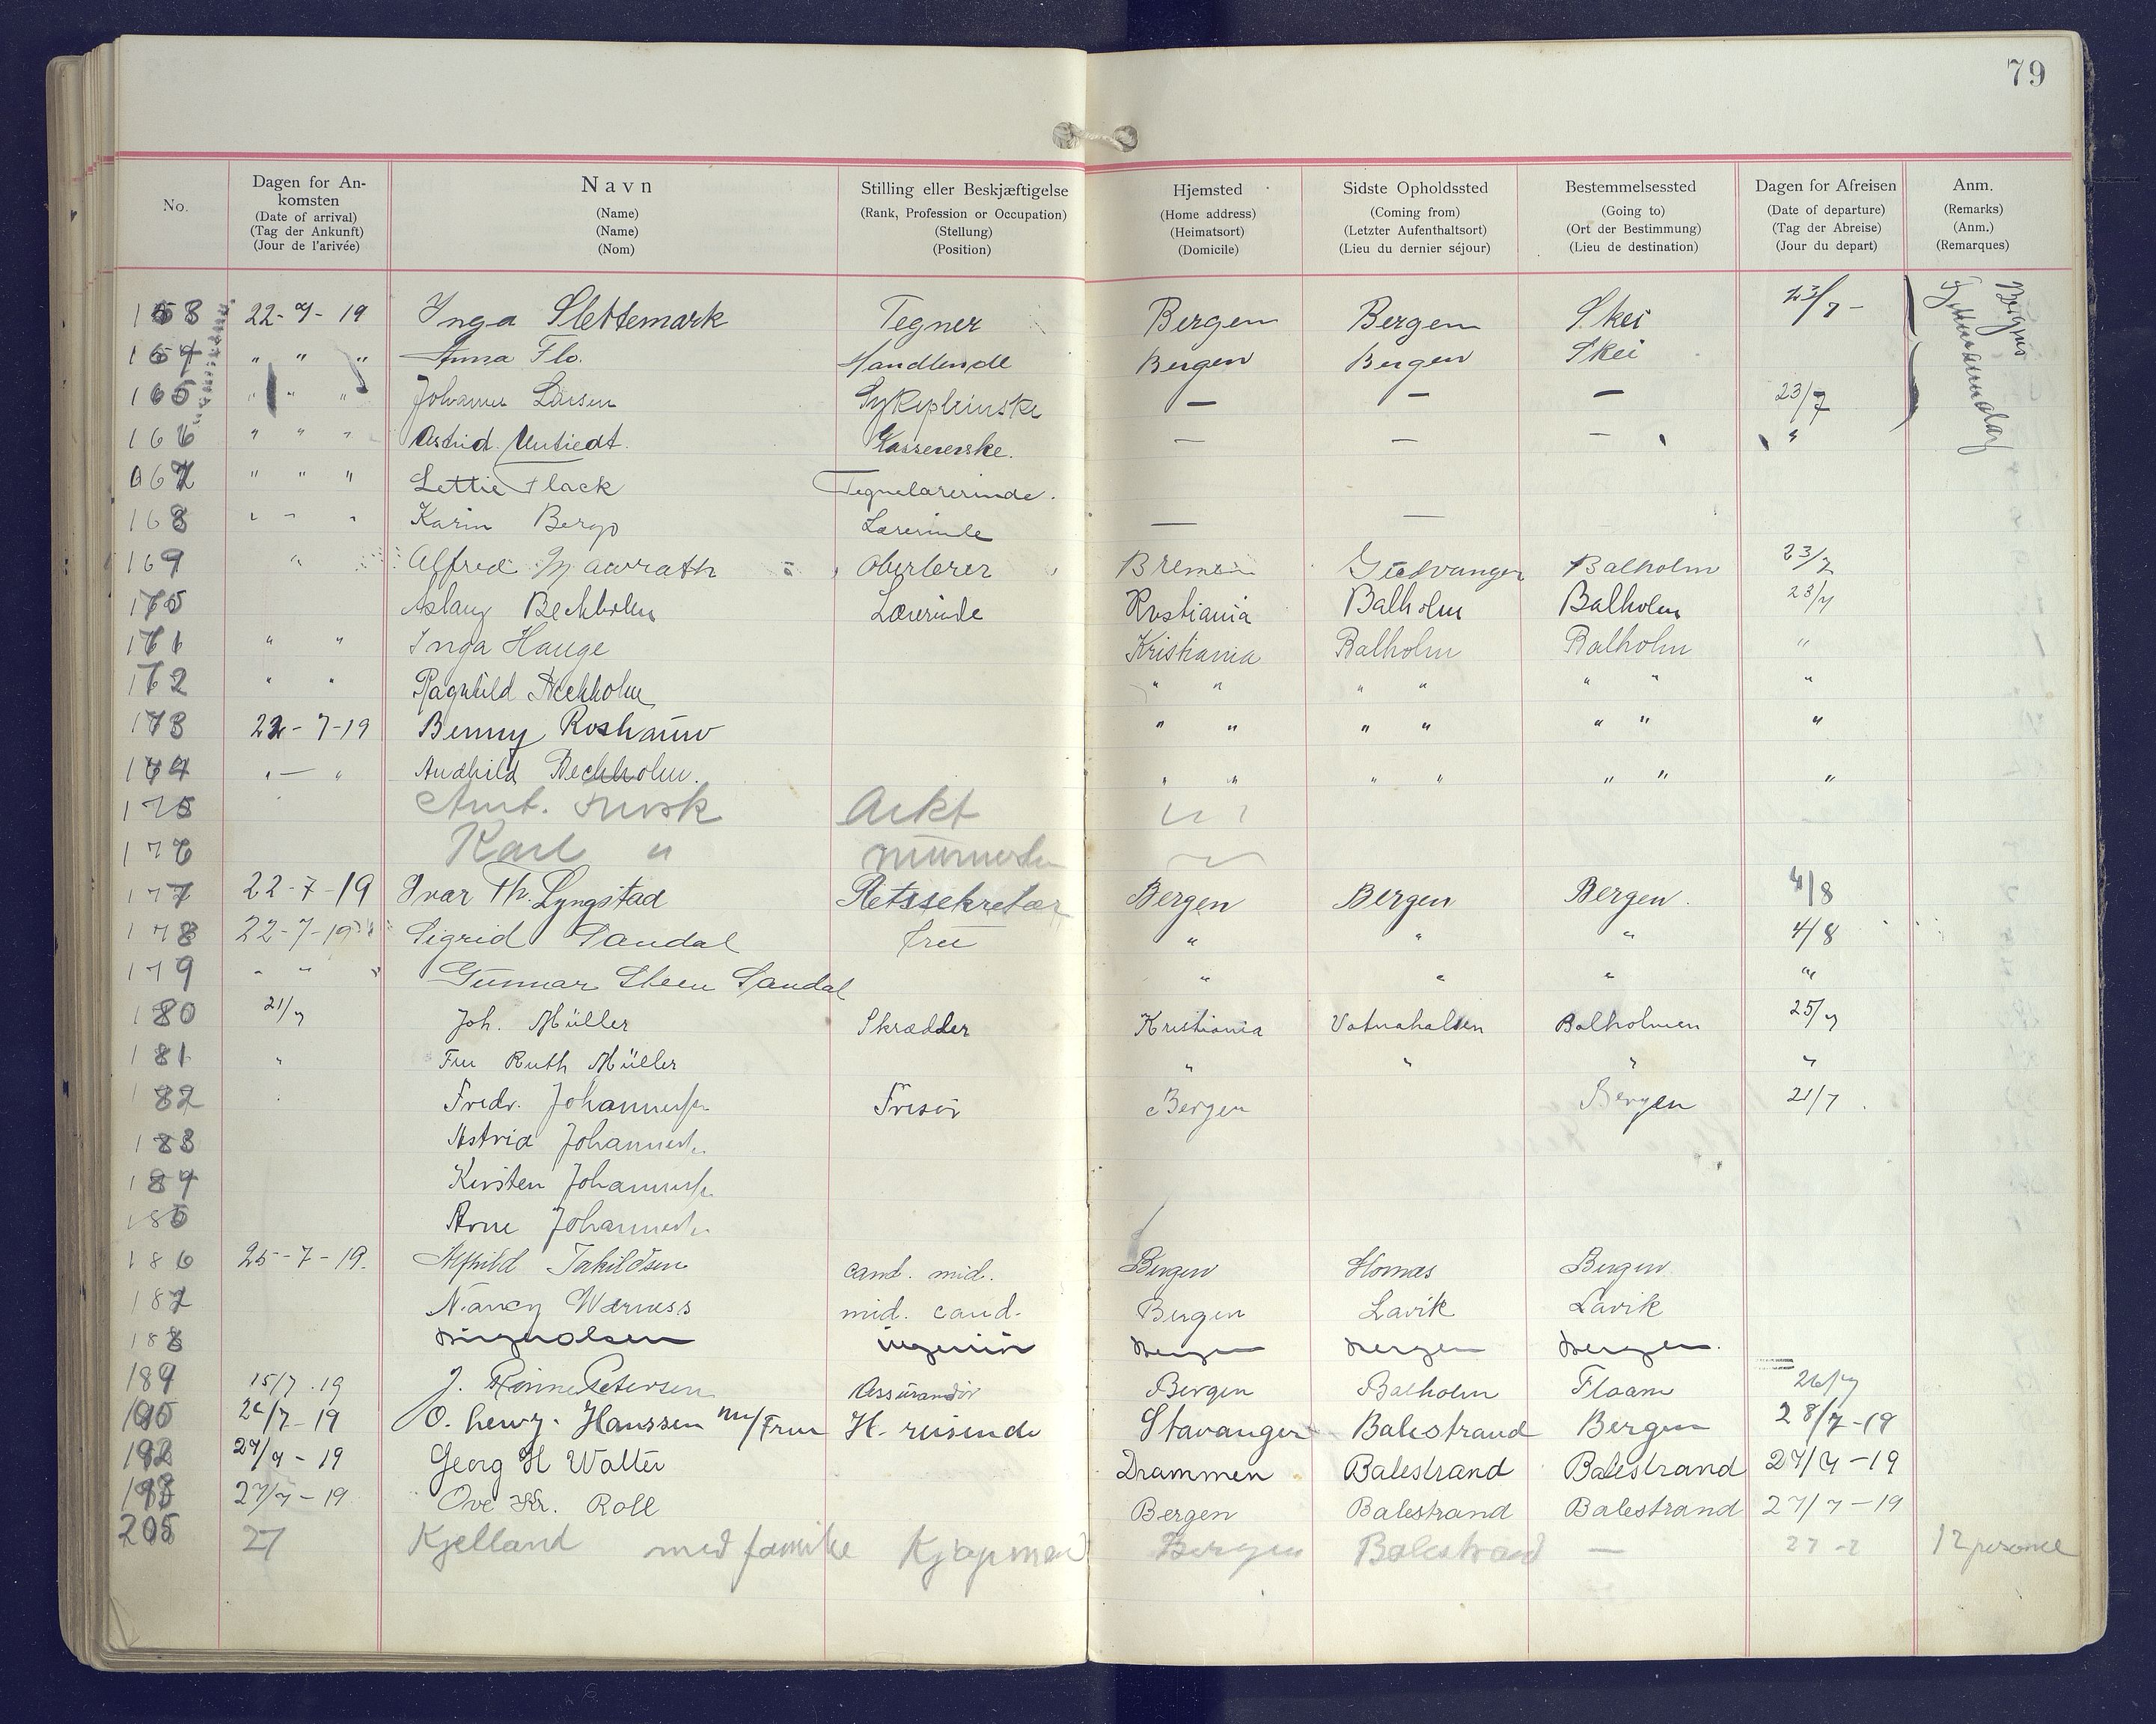 79
No.
Dagen for An-
komsten
(Date of arrival)
(Tag der Ankunft)
(Jour de l'arivée)
Navn
(Name)
(Name)
(Nom)
Stilling eller Beskjæftigelse
(Rank, Profession or Occupation)
(Stellung)
(Position)
Hjemsted
(Home address)
(Heimatsort)
(Domicile)
Sidste Opholdssted
(Coming from)
(Letzter Aufenthaltsort)
(Lieu du dernier séjour)
Bestemmelsessted
(Going to)
(Ort der Bestimmung)
(Lieu de destination)
Dagen for Afreisen
(Date of departure)
(Tag der Abreise)
(Jour du depart)
Anm.
(Remarks)
(Anm.)
(Remarques)
22-7-19 Inga Slettemark Tegner Bergen Bergen Skei 23/7 -
164 " " " Anna Flo. Handlende Bergen Bergen Skei
165 " " " Johanne Larsen — — — 23/7
166 " " " Astrid Kassererske. — — — "
167 " " " Lettie Flack Tegnelærerinde.
168 " " " Karin Berge Lærerinde — —
169 " Alfred Oberlerer Bremen Gudvangen Balholm 23/7
170 Aslaug Bechholm Lærerinde Kristiania Balholm Balholm 23/7
171 " " Inga Hauge Kristiania Balholm Balholm "
172 " " Ragnhild Bechholm " " " " " " "
173 22-7-19 Benny " " " " " " "
174 " — " Audhild Bechholm. " " " " " " "
175 Arkt
176 Karl "
177 22-7-19 Ivar Th. Lyngstad Retssekretær Bergen Bergen Bergen. 4/8
178 22-7-19 Sigrid Sandal frue " " " 4/8
179 " " " Gunnar Steen Sandal " " " "
180 21/7 Joh. Müller Skrædder Kristiania Vatnahalsen Balholmen 25/7
181 " Fru Ruth Müller " " " "
182 Fredr. Johannessen Frisør Bergen Bergen 21/7
183 Astrid Johannessen
184 Kirsten Johannessen
185 Arne Johannessen
186 25-7-19. Alfhild Torkildsen cand. mid. Bergen Bergen
187 Nancy Werness mid. cand. Bergen Lavik Lavik
188 ingeniør Bergen Bergen Bergen.
189 15/7 19 J. Rønne Petersen Assurandør Bergen Balholm Flaam 26/7
O. Henry Hanssen m/Frue H. reisende Stavanger Balestrand Bergen 28/7-19
192 27/7-19 Georg H Walter Drammen Balestrand Balestrand 27/7-19
193 27/7-19 Ove Kr. Roll Bergen Balestrand Balestrand 27/7-19
205 27 Kjelland med familie Kjøpmand Bergen Balestrand — 27-7 12 personer